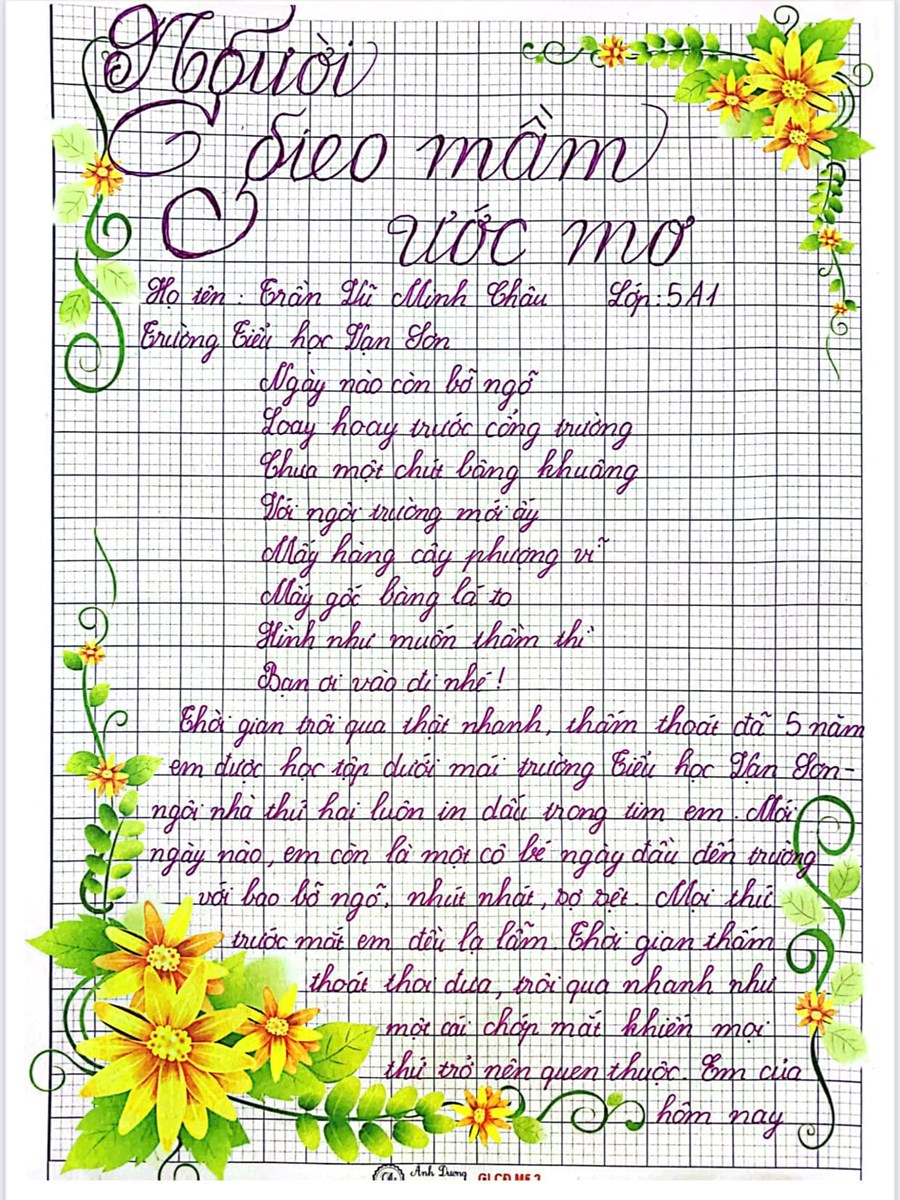 Người
gieo mầm
ước mơ
Họ tên : Trần Vũ Minh Châu Lớp: 5A1
Trường Tiểu học Vạn Sơn
Ngày nào còn bỡ ngỡ
Loay hoay trước cổng trường
Chưa một chút bâng khuâng
Với ngôi trường mới ấy
Mấy hàng cây phượng vĩ
Mấy gốc bàng lá to
Hình như muốn thầm thì
Bạn ơi vào đi nhé!
Thời gian trôi qua thật nhanh, thấm thoát đã 5 năm
em được học tập dưới mái trường Tiểu học Vạn Sơn-
ngôi nhà thứ hai luôn in dấu trong tim em. Mới
ngày nào, em còn là một cô bé ngày đầu đến trường
với bao bỡ ngỡ, nhút nhát, sợ sệt. Mọi thứ
trước mắt em đều lạ lẫm. Thời gian thấm
thoát thoi đưa, trôi qua nhanh như
một cái chớp mắt khiến mọi
thứ trở nên quen thuộc. Em của
hôm nay
Anh Dương